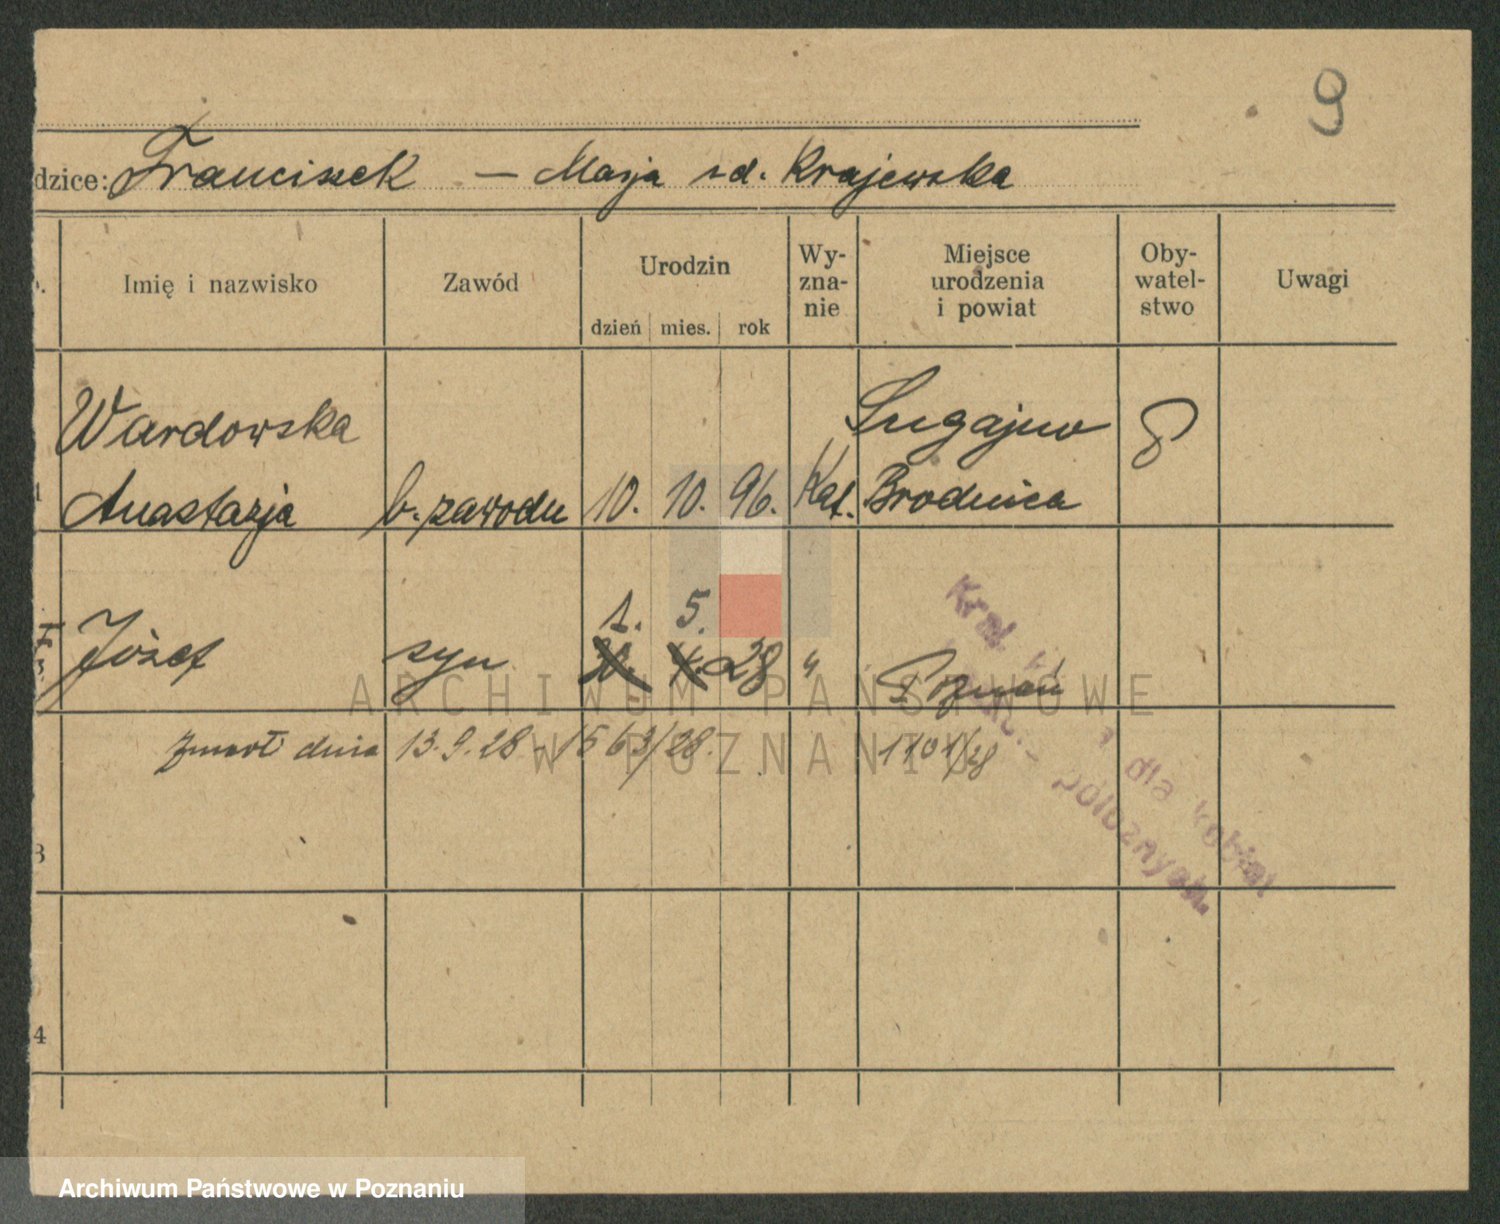 9
dzice: Franciszek – Marja z d. Krajewska
Imię i nazwisko
Zawód
Urodzin
dzień mies. rok
Wy-
zna-
nie
Miejsce
urodzenia
i powiat
Oby-
watel-
stwo
Uwagi
Wardowska
Anastazja b. zawodu 10. 10. 96. Kat. Brodnica
1. 5.
Józef syn 28 " Poznań
zmarł dnia 13.9.28 - 1563/28. 1101/28
3
4
dla kobiet
położnych.
ARCHIWUM PAŃSTWOWE
W POZNANIU
Archiwum Państwowe w Poznaniu